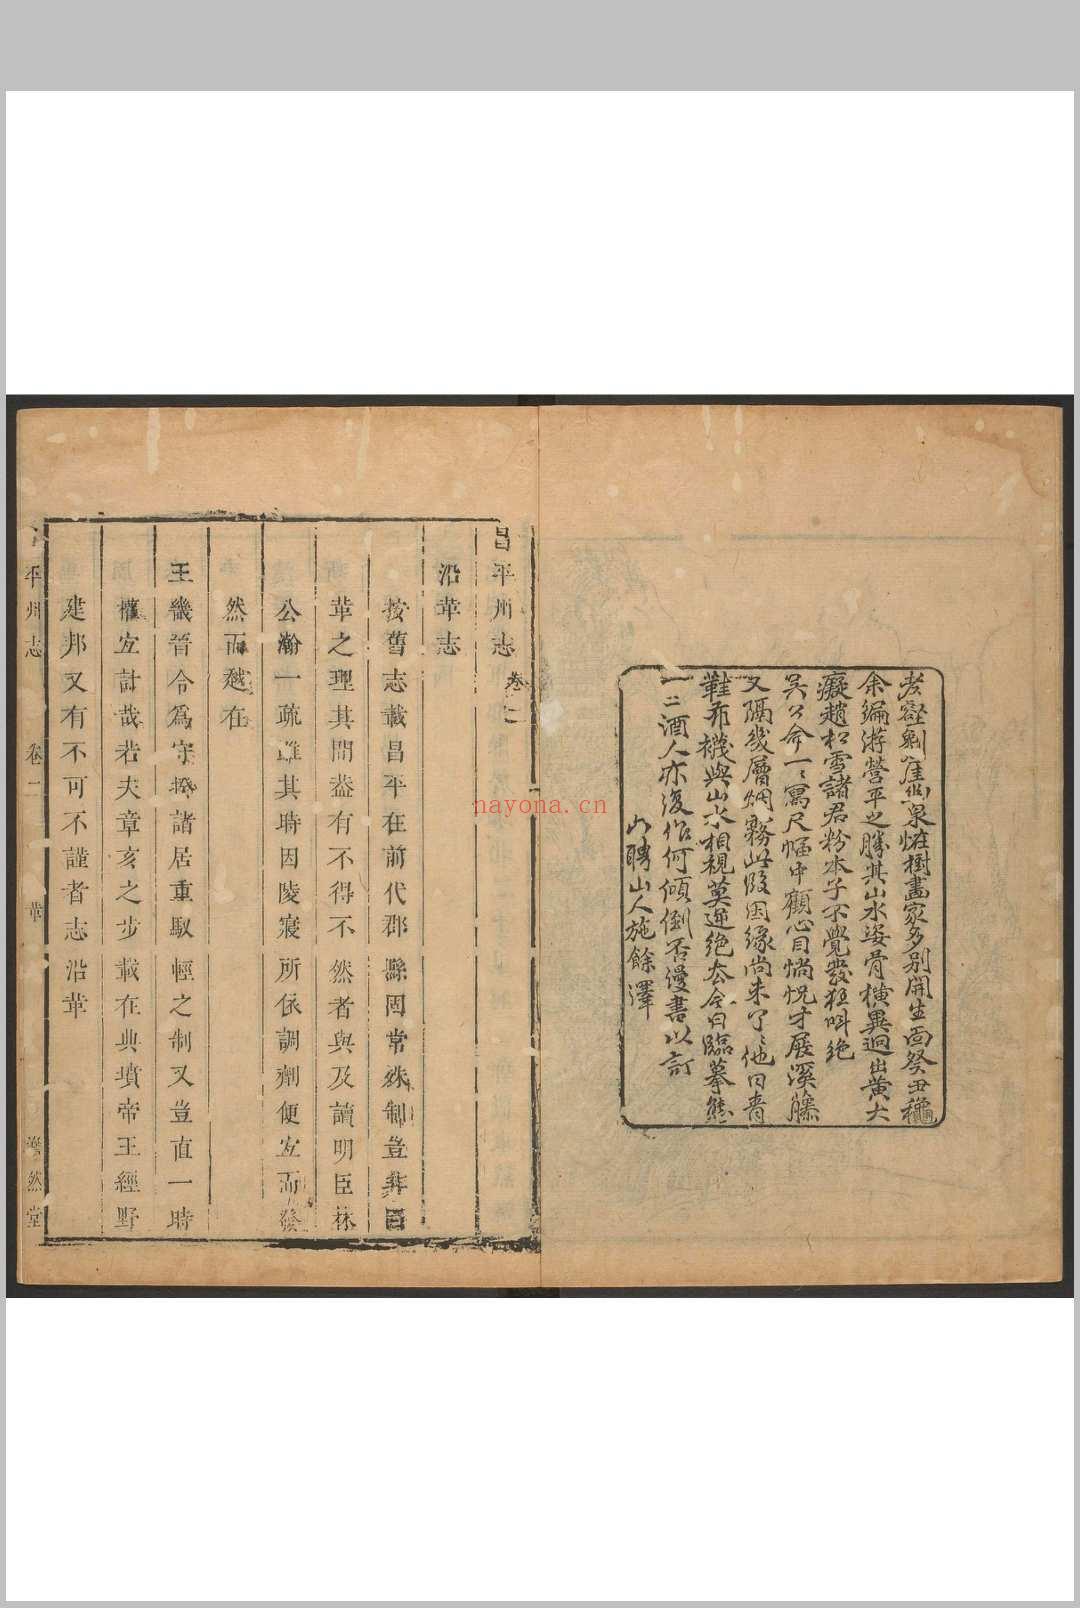 老壑剩崖必泉怪樹畫家多別開生面癸丑穐
余編游營平之勝其山水姿骨橫異迥出黃大
癡趙松雪諸君粉本子不覺發狂叫絕
吳公命一一寫尺幅中顧心目惝怳才展溪藤
又隔幾層烟霧此段因緣尚未了了他日青
鞋布襪與山水相視莫逆絕太今日臨摹態
一二酒人亦復作何傾倒否漫書以訂
聘山人施餘澤
昌平州志 卷二
沿革志
按舊志載昌平在前代郡縣固常殊制豈非因
革之理其間盖有不得不然者與及讀明臣林
公瀚一疏誰其時因陵寢所依調劑便宜而發
然而越在
王畿首令爲守揆諸居重馭輕之制又豈直一時
權宜計哉若夫章亥之步載在典墳帝王經野
建邦又有不可不謹者志沿革
平州志 卷二 革 澹然堂
nayona.cn